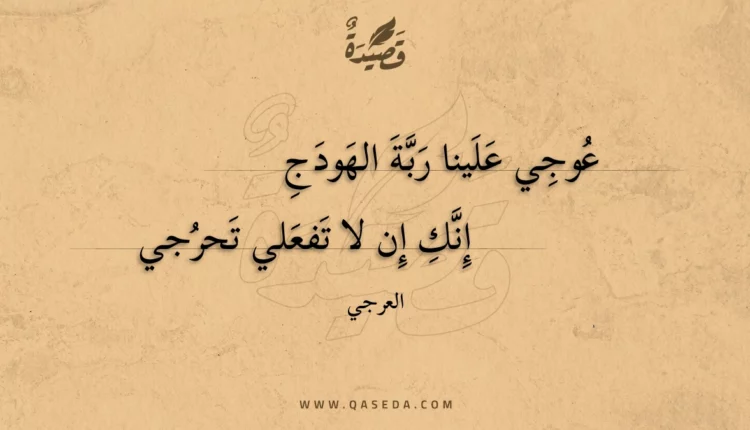 قَصِيدَةٌ
عُوجِي عَلَينا رَبَّةَ الهَودَجِ
إِنَّكِ إِن لا تَفعَلي تَحرُجي
العرجي
WWW.QASEDA.COM